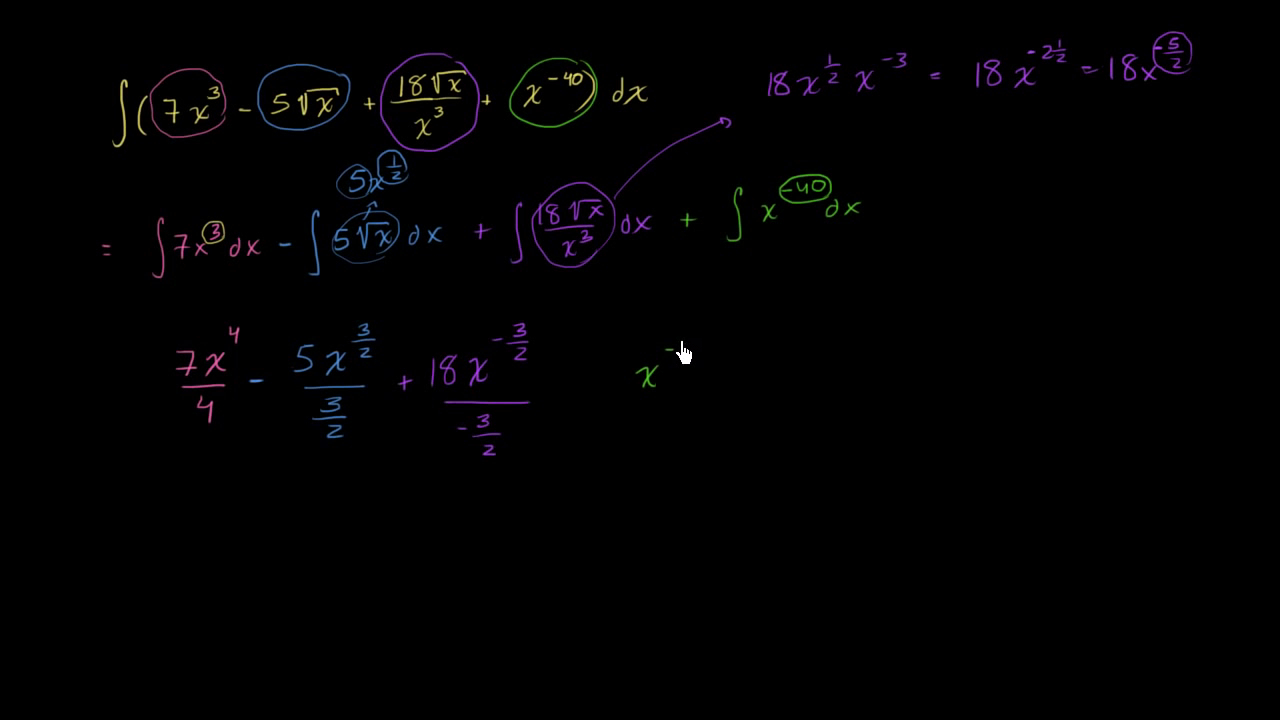 ∫(7x³ - 5√x + 18√x/x³ + x⁻⁴⁰) dx
18x^(1/2) x⁻³ = 18x^(-2 1/2) = 18x^(-5/2)
5x^(1/2)
= ∫7x³dx - ∫5√x dx + ∫18√x/x³ dx + ∫x⁻⁴⁰dx
7x⁴/4 - 5x^(3/2)/(3/2) + 18x^(-3/2)/(-3/2) x⁻